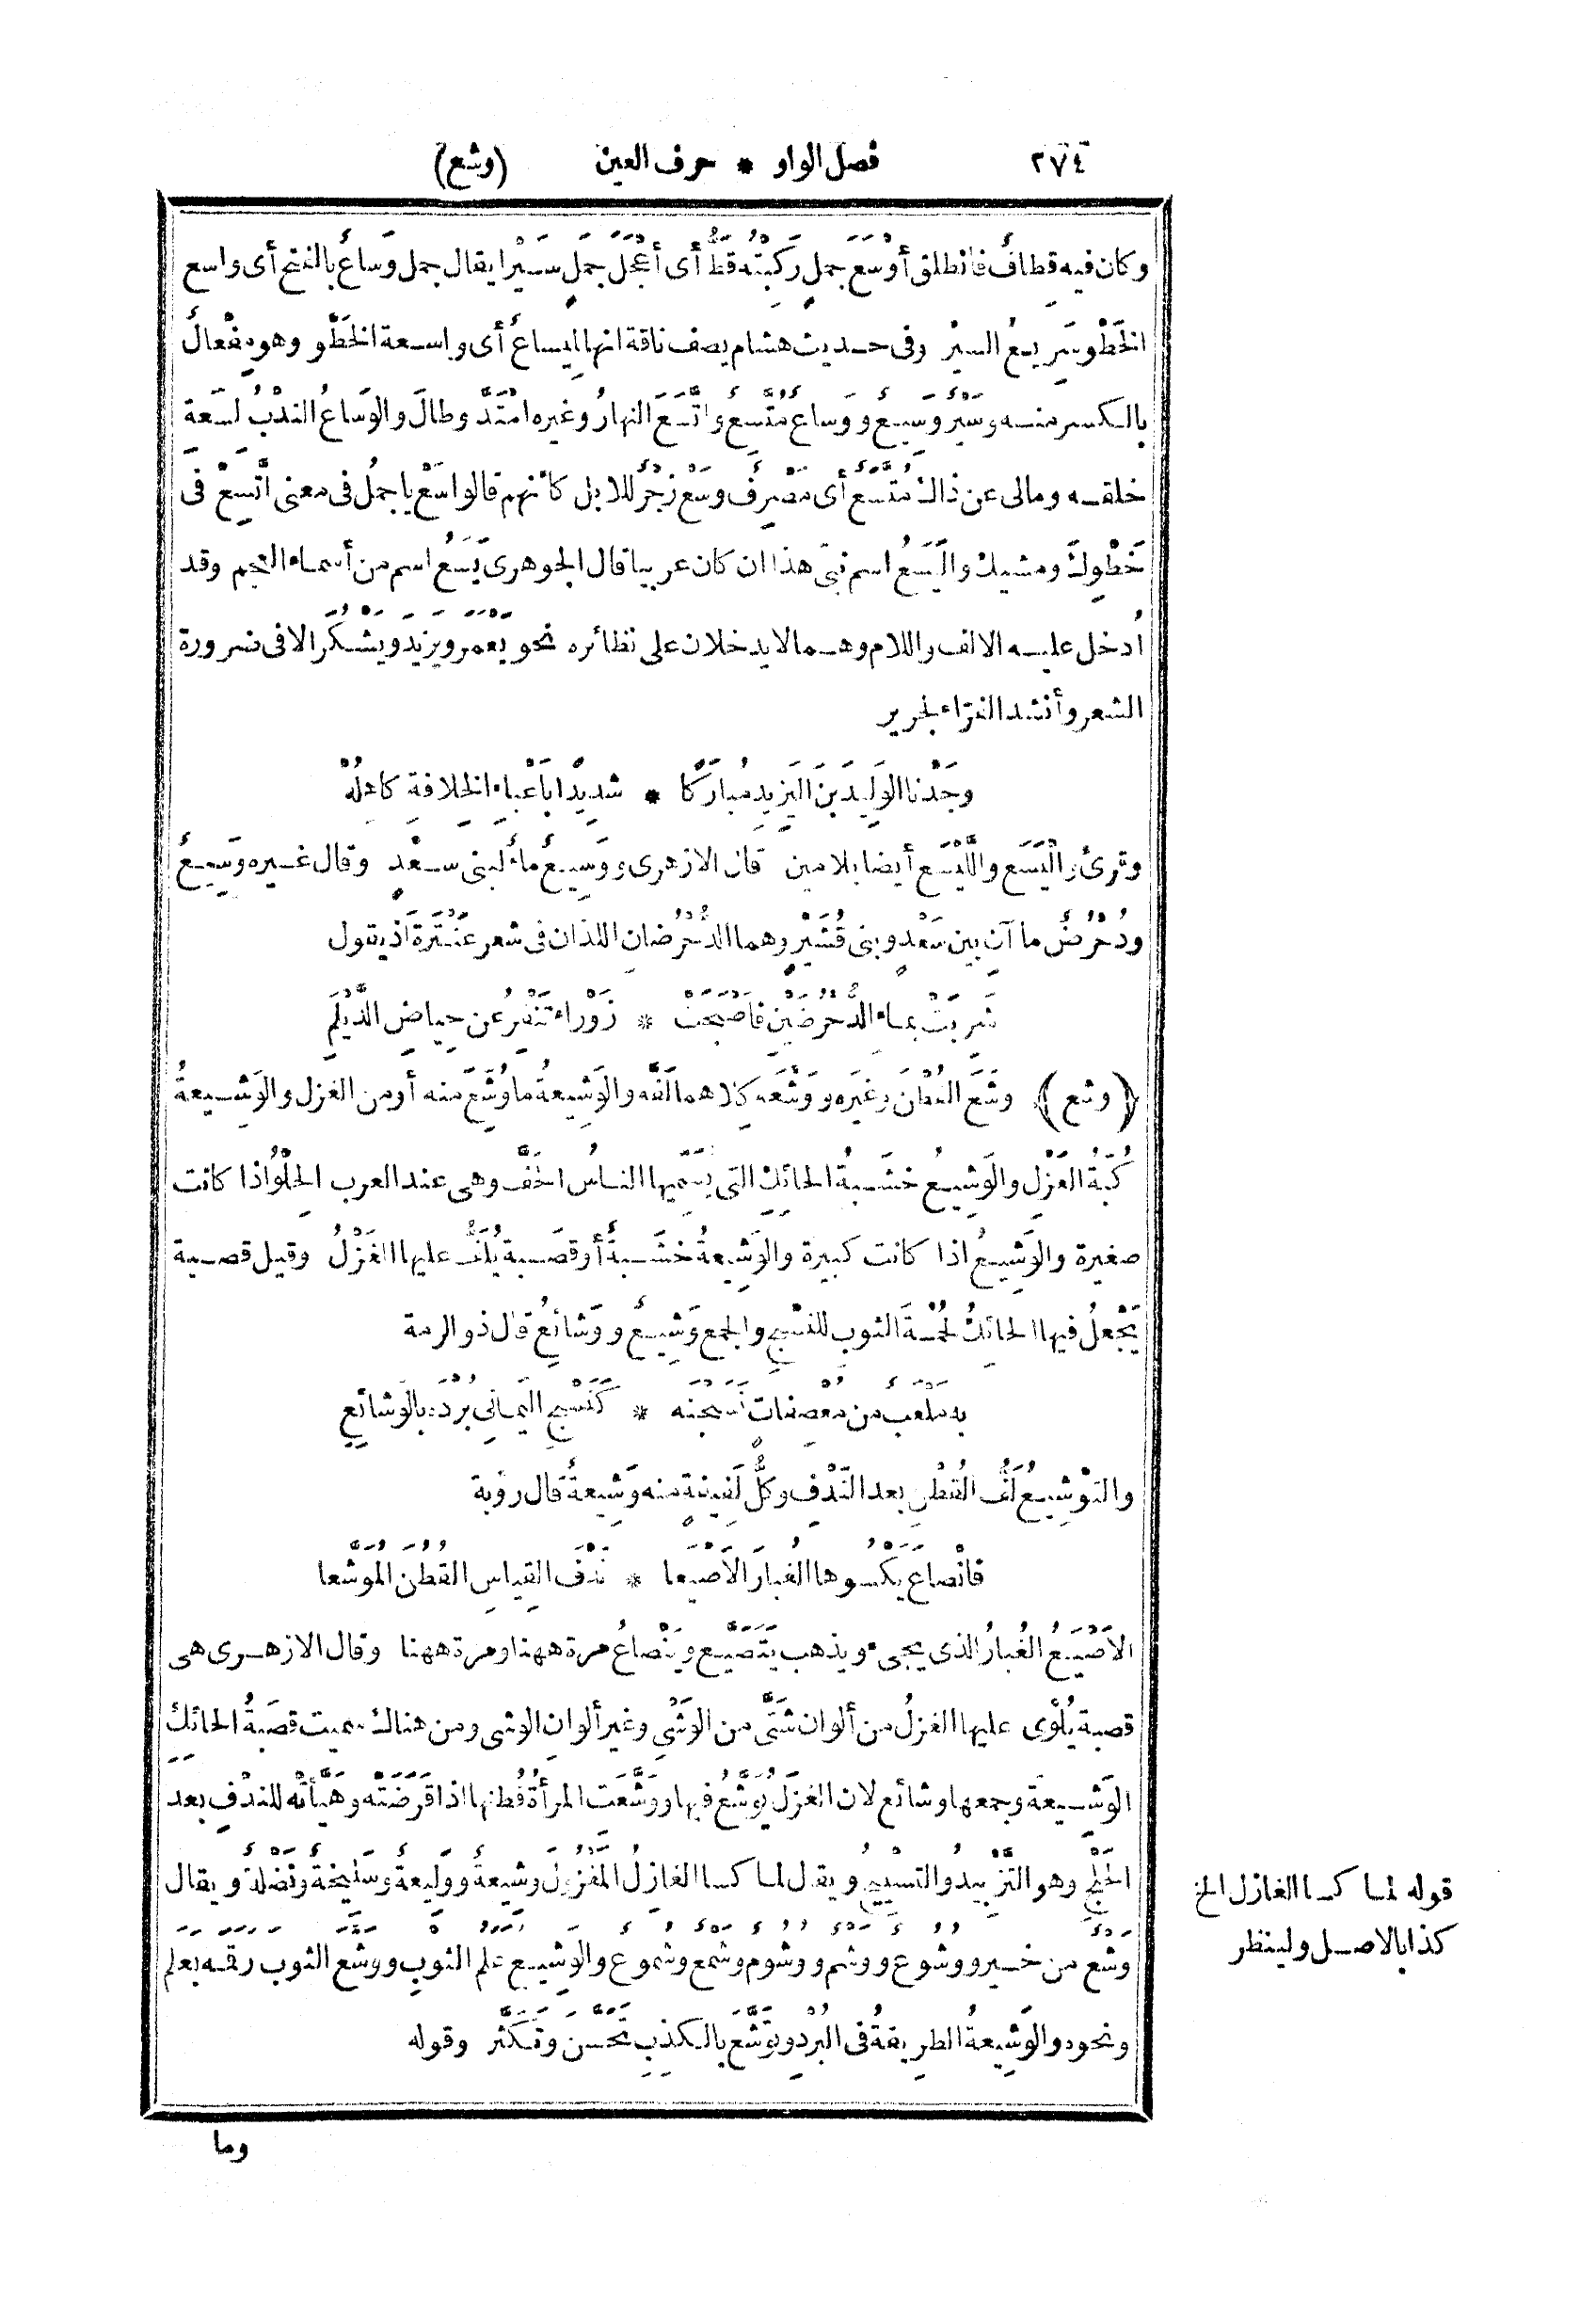 ٢٧٤ فصل الواو * حرف العين (وشع)
وكان فيه قطافٌ فانطلق أَوْسَعَ جملٍ رَكِبْتُه قَطُّ أى أَعْجَلَ جَمَلٍ سَيْرا يقال جمل وَساعٌ بالفتح أى واسع
الخَطْوِ سَرِيعُ السيْر وفى حديث هشام يصف ناقة انها لمِيساعٌ أى واسعة الخَطْو وهو مِفْعالٌ
بالكسر منه وسَيْرٌ وَسِيعٌ ووَساعٌ مُتَّسِعٌ واتَّسَعَ النهارُ وغيره امْتَدَّ وطالَ والوَساعُ الندْبُ لسَعةِ
خلقه ومالى عن ذاك مُتَّسَعٌ أى مَصْرِفٌ وسَعْ زَجْرٌ للابل كأنهم قالوا سَعْ ياجملُ فى معنى اتَّسِعْ فى
خَطْوِكَ ومشيك واليَسَعُ اسم نبىّ هذا ان كان عربيا قال الجوهرى يَسَعُ اسم من أسماء العجم وقد
أُدخل عليه الالف واللام وهما لا يدخلان على نظائره نحو يَعْمَر ويَزيدَ ويَشْكُرَ الا فى ضرورة
الشعر وأنشد الفرّاء لجرير
وجَدْنا الوَلِيدَ بنَ اليَزِيدِ مُبارَكًا * شَدِيدًا بأَعْباءِ الخِلافةِ كاهِلُهْ
وقرئ والْيَسَع واللَّيْسَع أيضا بلامين قال الازهرى ووَسِيعٌ ماءٌ لبنى سعْدٍ وقال غيره وَسِيعٌ
ودُحْرُضٌ ماآنِ بين سَعْدٍ وبنى قُشَيْرٍ وهما الدُّحْرُضانِ اللذان فى شعر عَنْتَرَةَ اذ يقول
شَرِبَتْ بماءِ الدُّحْرُضَيْنِ فأَصْبَحَتْ * زَوْراءَ تَنْفِرُ عن حِياضِ الدَّيْلَمِ
(وشع) وشَعَ القُطْنَ وغيرَه ووَشَّعَه كِلاهما لَفَّه والوَشِيعةُ ما وُشِّعَ منه أو من الغزل والوَشِيعةُ
كُبّةُ الغَزْلِ والوَشِيعُ خشَبةُ الحائِكِ التى يُسَمِّيها الناسُ الحَفَّ وهى عند العرب الحِلْوُ اذا كانت
صغيرة والوَشِيعُ اذا كانت كبيرة والوَشِيعةُ خَشَبةٌ أو قصَبة يُلَفُّ عليها الغَزْلُ وقيل قصبة
يَجْعلُ فيها الحائِكُ لُحْمةَ الثوبِ للنسْجِ والجمع وَشِيعٌ ووَشائِعُ قال ذو الرمة
به مَلْعَبٌ من مُعْصِفاتٍ نَسَجْنَه * كَنَسْجِ اليَمانِى بُرْدَه بالوَشائِعِ
والتوْشِيعُ لَفُّ القُطْنِ بعد النَّدْفِ وكلُّ لَفِيفةٍ منه وَشِيعةٌ قال رؤبة
فانْصاعَ يَكْسُوها الغُبارَ الأَصْيَعا * نَدْفَ القِياسِ القُطُنَ المُوَشَّعا
الأَصْيَعُ الغُبارُ الذى يجىء ويذهب يَتَصَيَّع ويَنْصاعُ مرة ههنا ومرة ههنا وقال الازهرى هى
قصبة يُلْوَى عليها الغزلُ من ألوان شَتَّى من الوَشْىِ وغير ألوانِ الوشى ومن هناك سميت قصَبةُ الحائِكِ
الوَشِيعةَ وجمعها وشائع لان الغزلَ يُوَشَّعُ فيها ووَشَّعَت المرأةُ قُطنها اذا قَرَضَتْه وهَيَّأَتْه للنَدْفِ بعد
الحَلْجِ وهو التَّزْبِيدُ والتسْبِيخُ ويقال لما كسا الغازِلُ المَغْزُولَ وشيعةٌ ووَلِيعةٌ وسَلِيخةٌ ونَضْلةٌ ويقال
وَشْعٌ من خير ووُشُوعٌ ووشْم ووُشُوم وشَمْع وشُمُوعٌ والوَشِيعُ عَلَمُ الثوبِ ووشَّعَ الثوب رقَمه بعلم
ونحوه والوَشِيعةُ الطرِيقةُ فى البُرْدِ وتَوَشَّعَ بالكذِبِ تَحَسَّنَ وتَكَثَّر وقوله
قوله لما كسا الغازل الخ
كذا بالاصل ولينظر
وما